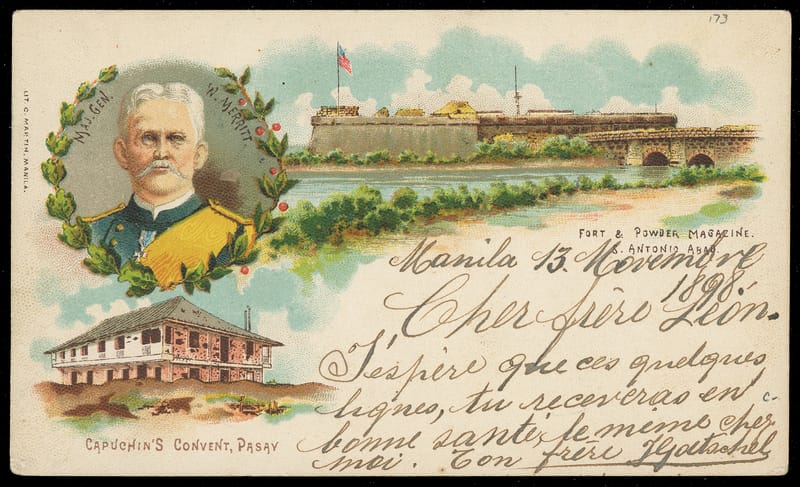 173
MAJ. GEN. W. MERRITT
LIT. C. MARTIN. MANILA.
FORT & POWDER MAGAZINE.
S. ANTONIO ABAD.
Manila 13. Novembre
1898.
Cher frère Léon.
J'espère que ces quelques
lignes, tu receveras en
bonne santé, le même chez
moi. Ton frère
CAPUCHIN'S CONVENT, PASAY